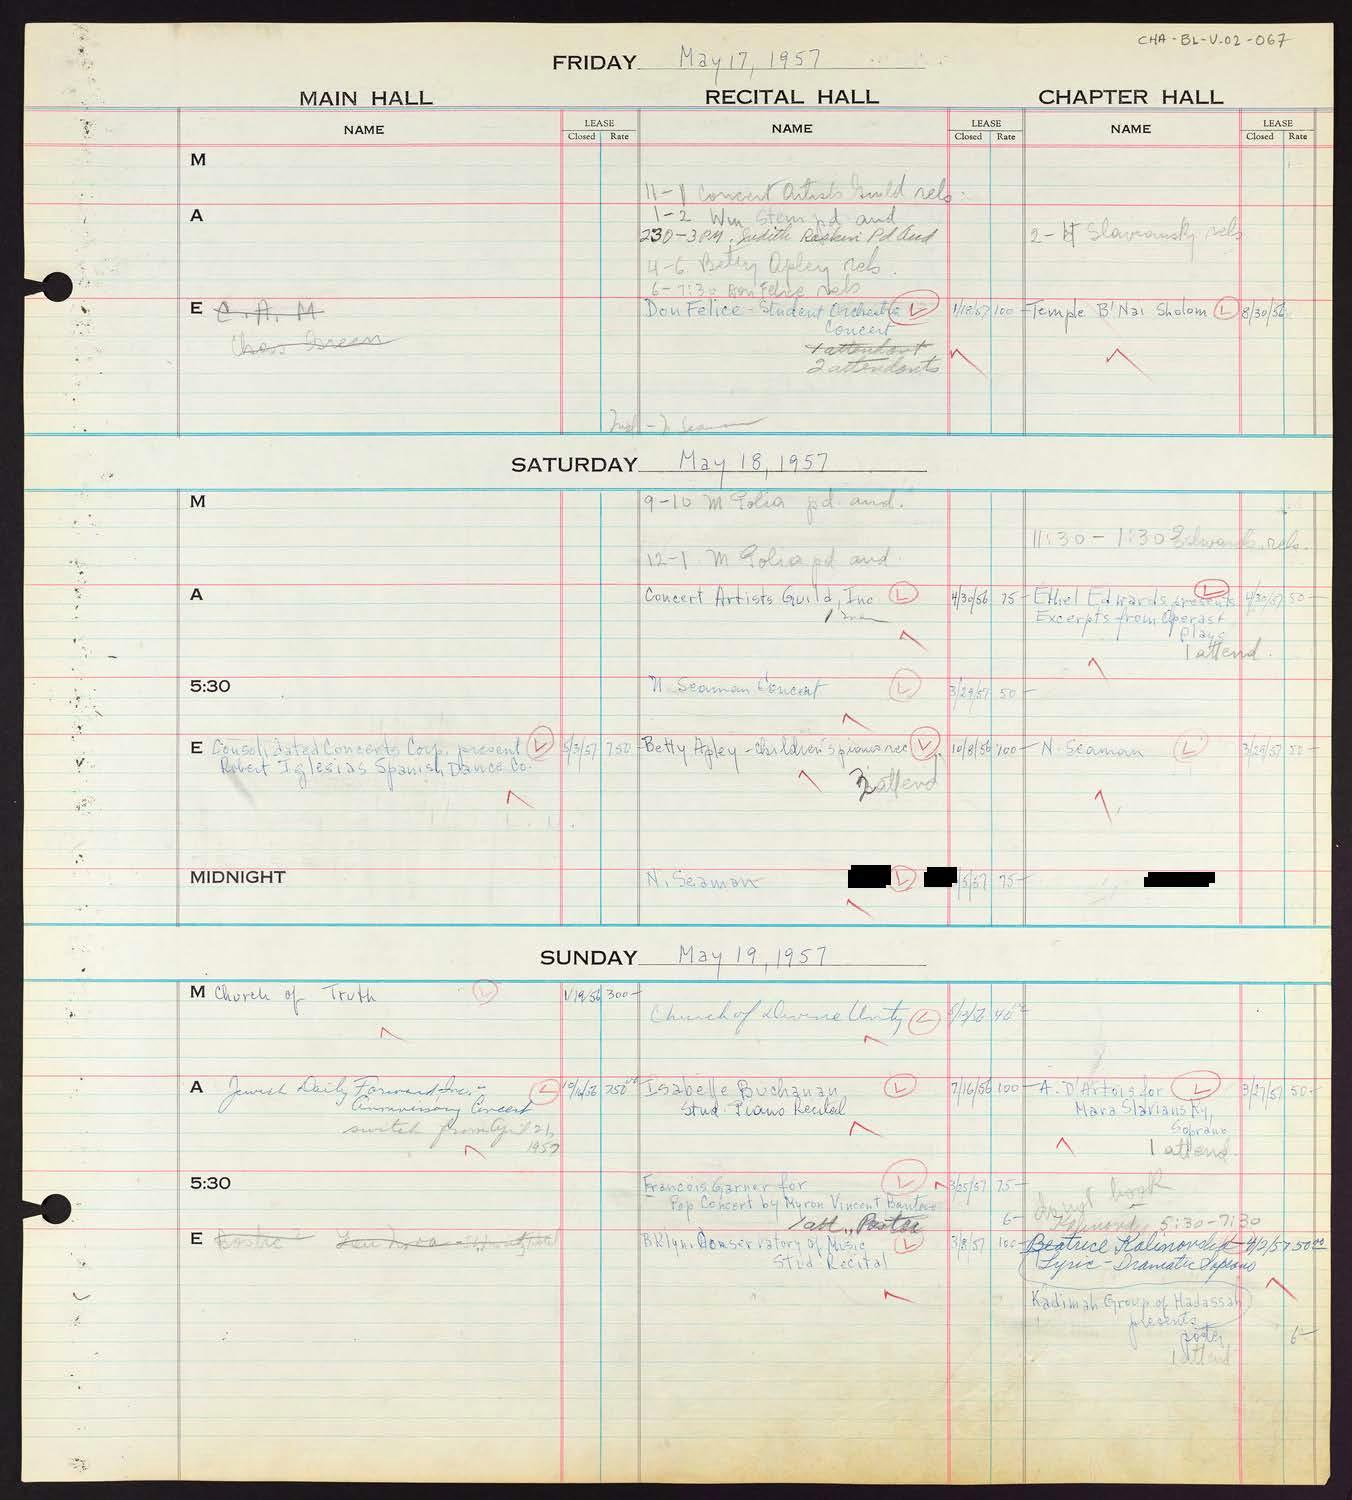 CHA-BL-V.02-067
FRIDAY May 17, 1957
MAIN HALL RECITAL HALL CHAPTER HALL
NAME LEASE Closed Rate NAME LEASE Closed Rate NAME LEASE Closed Rate
M
11-1 Concert Artists Guild rels.
A 1-2 Wm Stern pd aud
230-3PM. Judith Raskin Pd Aud 2-4 rels
4-6 Betty Apley rels.
6-7:30 Don Felice rels
E C.A.M Don Felice - Student Orchestra L 1/18/57 100- Temple B'Nai Sholom L 8/30/56
Chas Green Concert
1 attendant
2 attendants
SATURDAY May 18, 1957
M 9-10 M Golia pd aud.
11:30-1:30 Edwards rels.
12-1 M Golia pd aud
A Concert Artists Guild, Inc L 4/30/56 75- Ethel Edwards presents L 4/30/57 50-
1 man Excerpts from Operas +
Plays
1 attend.
5:30 N. Seaman Concert L 3/29/57 50-
E Consolidated Concerts Corp. present L 5/3/57 750- Betty Apley - Children's piano rec L 10/8/56 100- N. Seaman L 3/29/57 50-
Robert Iglesias Spanish Dance Co.
attend
MIDNIGHT N. Seaman L 5/57 75-
SUNDAY May 19, 1957
M Church of Truth L 1/19/56 300-
Church of Divine Unity L
A Jewish Daily Forward Inc. - L 750 Isabelle Buchanan L 7/16/56 100- A. D'Artois for L 3/27/57 50-
Anniversary Concert Stud. Piano Recital Mara Slaviansky,
switch from April 21, Soprano
1957 1 attend.
5:30 Francois Garner for L 3/25/57 75- do not book
Pop Concert by Myron Vincent
1 att., Poster 6- 5:30-7:30
E Bklyn. Conservatory of Music L 3/8/57 100- Beatrice 4/2/57 50.00
Stud. Recital Lyric - Dramatic Soprano
Kadimah Group of Hadassah
presents
poster 6-
1 attend